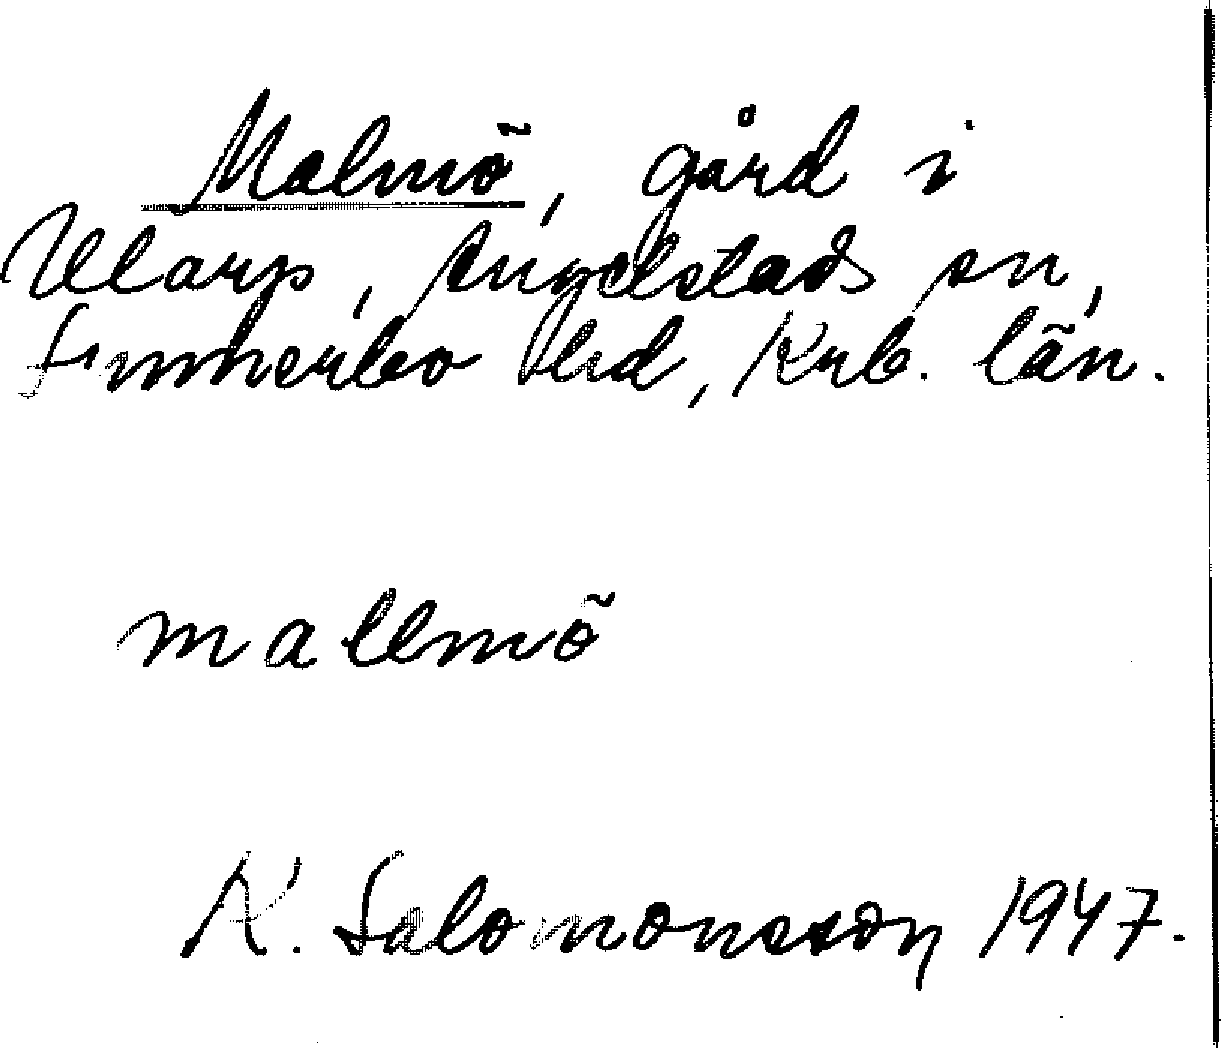 Malmö, gård i
Ularp, Angelstads sn,
Sunnerbo hd, Krb. län.
mallmö
K. Salomonsson 1947.